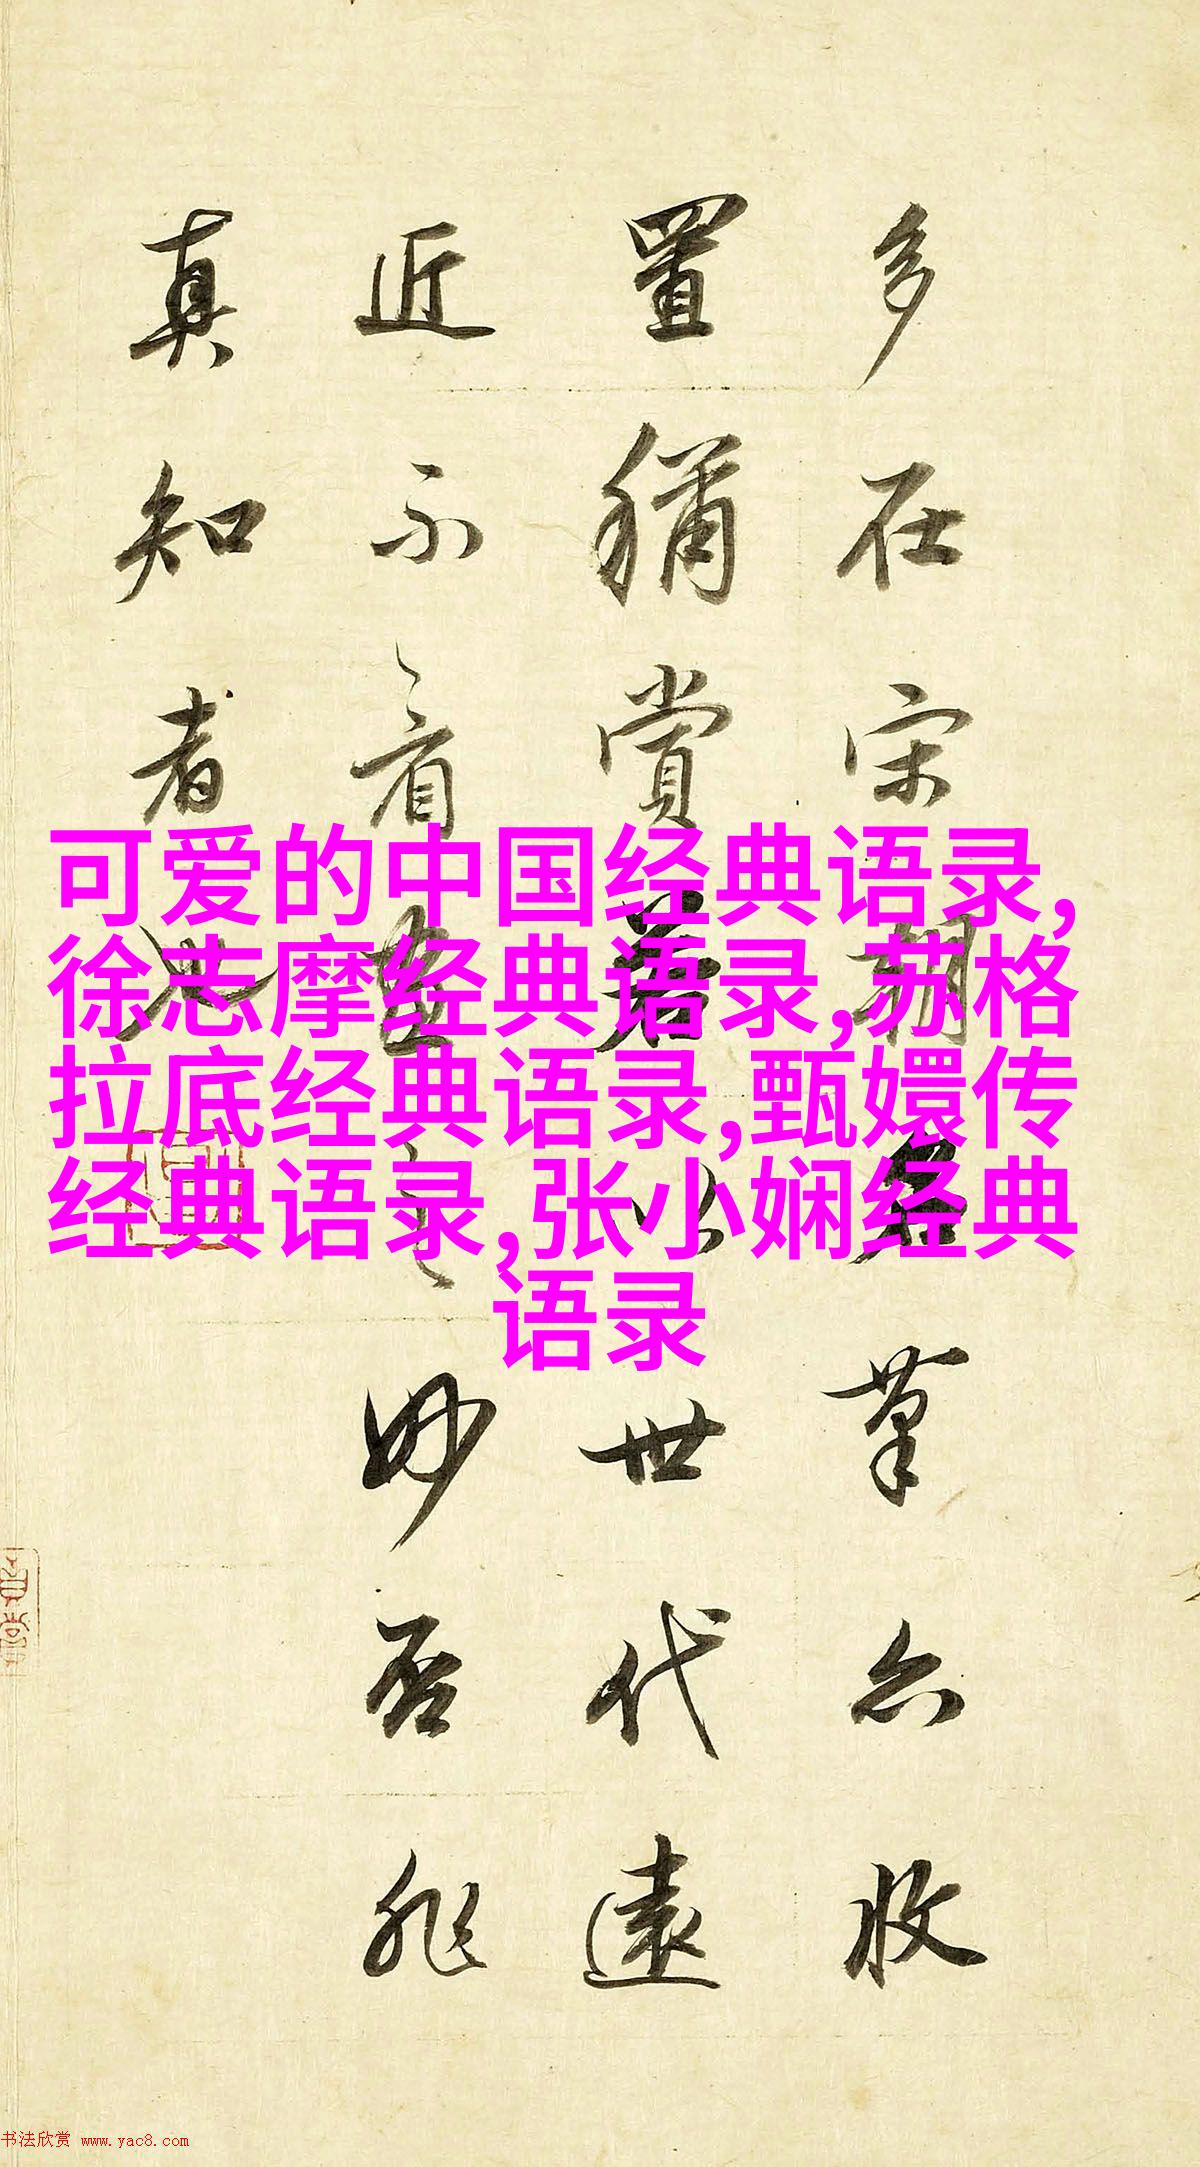 多在宋朝名筆亦收
置稱賞若以世代遠
近不看畫之妙否非
真知者也
可爱的中国经典语录,
徐志摩经典语录,苏格
拉底经典语录,甄嬛传
经典语录,张小娴经典
语录
书法欣赏 www.yac8.com